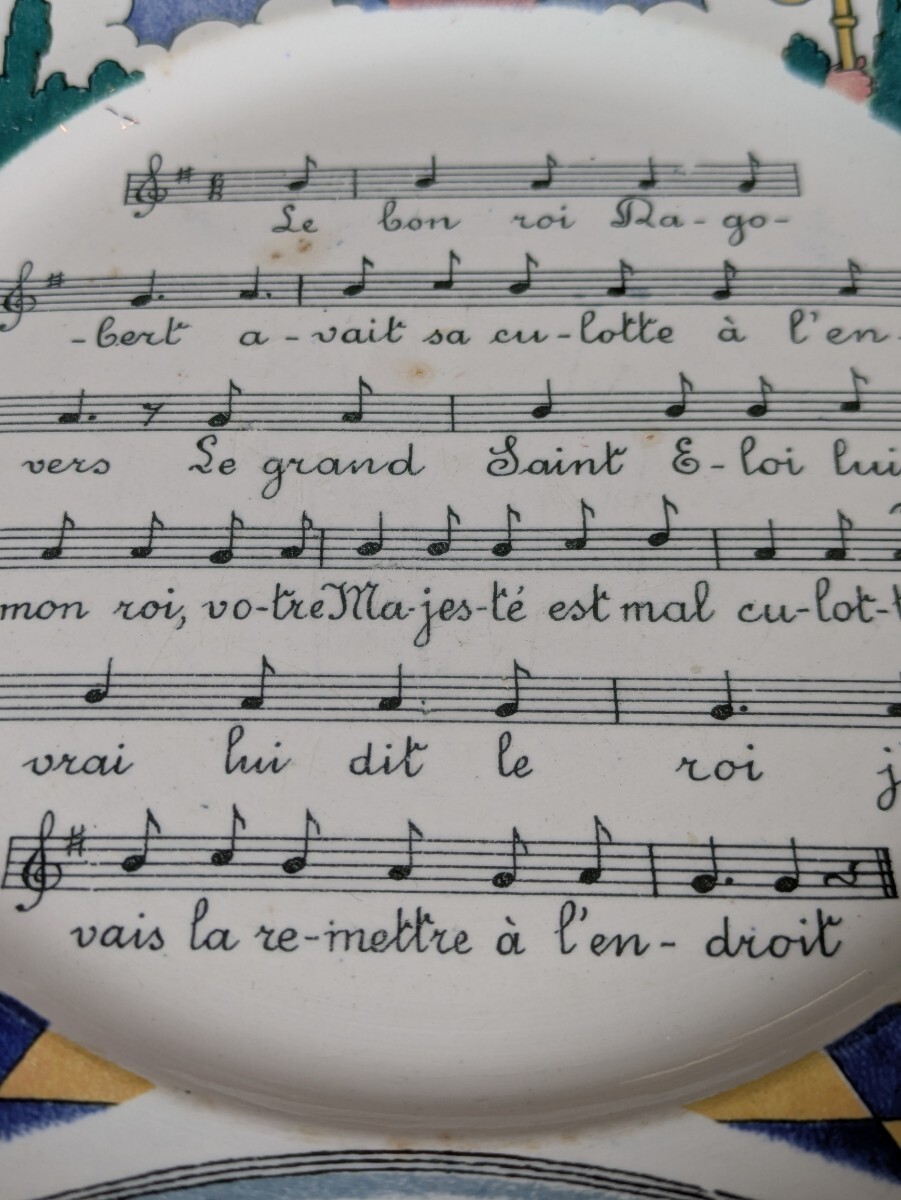 Le bon roi Da-go-
-bert a-vait sa cu-lotte à l'en-
vers Le grand Saint E-loi lui
mon roi, vo-tre Ma-jes-té est mal cu-lot-t
vrai lui dit le roi j
vais la re-mettre à l'en-droit